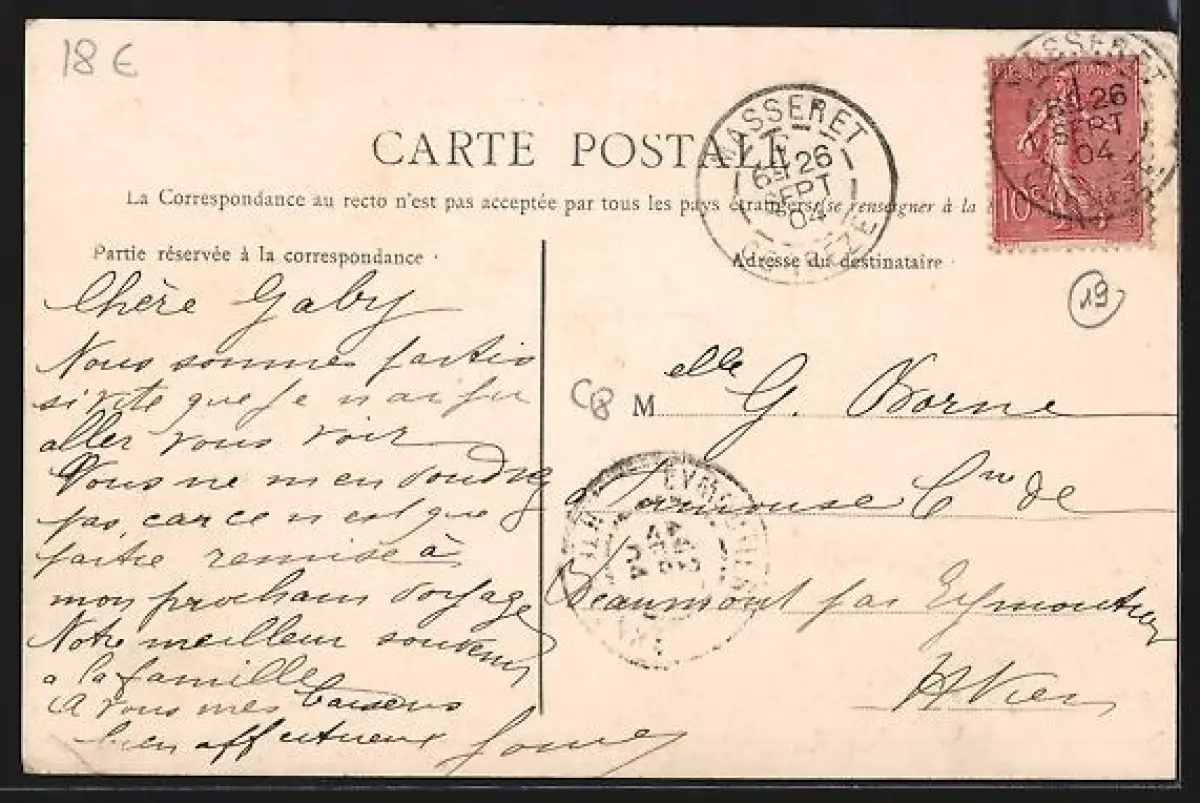 18 €
CARTE POSTALE
MASSERET
6E 26
SEPT
04
CORREZE
MASSERET
6E 26
SEPT
04
10
La Correspondance au recto n'est pas acceptée par tous les pays étrangers (se renseigner à la
Partie réservée à la correspondance
Adresse du destinataire
19
Chère Gaby
Nous sommes partis
si vite que je n ai pu
aller vous voir
Vous ne m en voudrez
pas car ce n est que
partie remise à
mon prochain voyage
Notre meilleur souvenir
a la famille
A vous mes baisers
bien affectueux
CB
Melle G. Borne
à
Cne de
Beaumont par Eymoutiers
Hte Vien
EYMOUTIERS
04